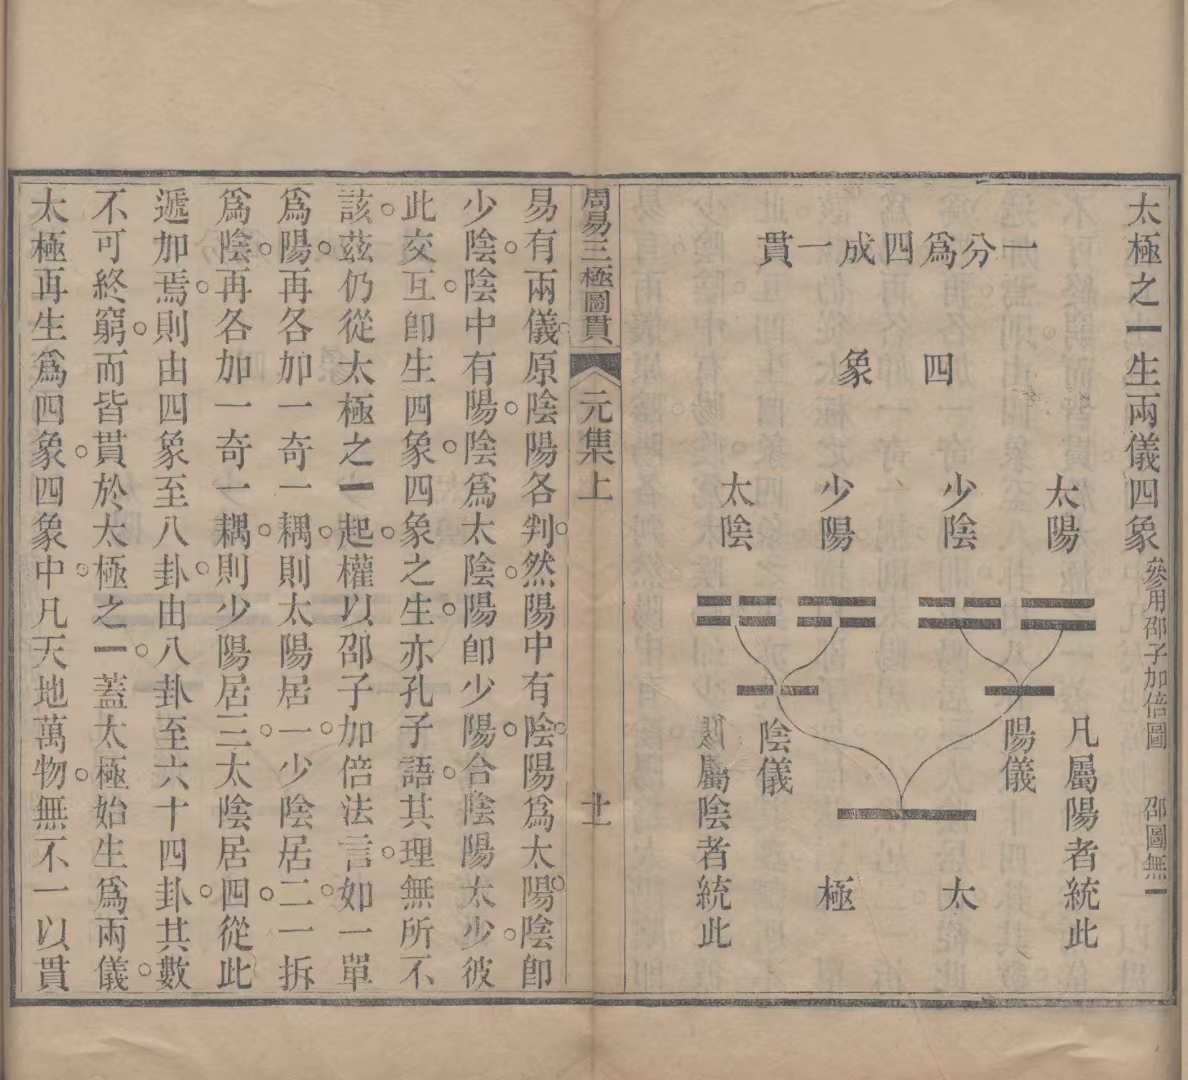 太極之一生兩儀四象參用邵子加倍圖 邵圖無一
一分爲四成一貫
四象
太陽
少陰
少陽
太陰
凡屬陽者統此
陽儀
陰儀
凡屬陰者統此
太極
周易三極圖貫
元集上
十一
易有兩儀原陰陽各判然陽中有陰陽爲太陽陰卽
少陰陰中有陽陰爲太陰陽卽少陽合陰陽太少彼
此交互卽生四象四象之生亦孔子語其理無所不
該茲仍從太極之一起權以邵子加倍法言如一單
爲陽再各加一奇一耦則太陽居一少陰居二一拆
爲陰再各加一奇一耦則少陽居三太陰居四從此
遞加焉則由四象至八卦由八卦至六十四卦其數
不可終窮而皆貫於太極之一蓋太極始生爲兩儀
太極再生爲四象四象中凡天地萬物無不一以貫